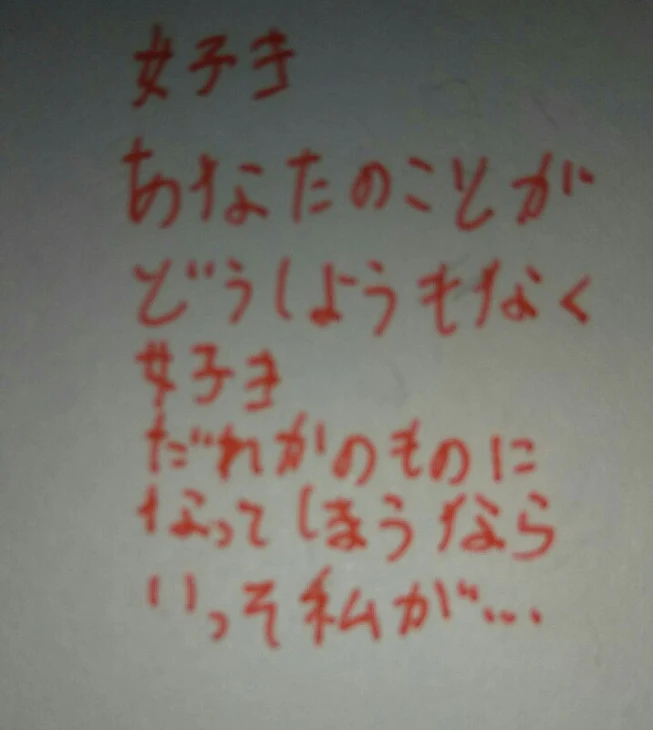 好き
あなたのことが
どうしようもなく
好き
だれかのものに
なってしまうなら
いっそ私が...